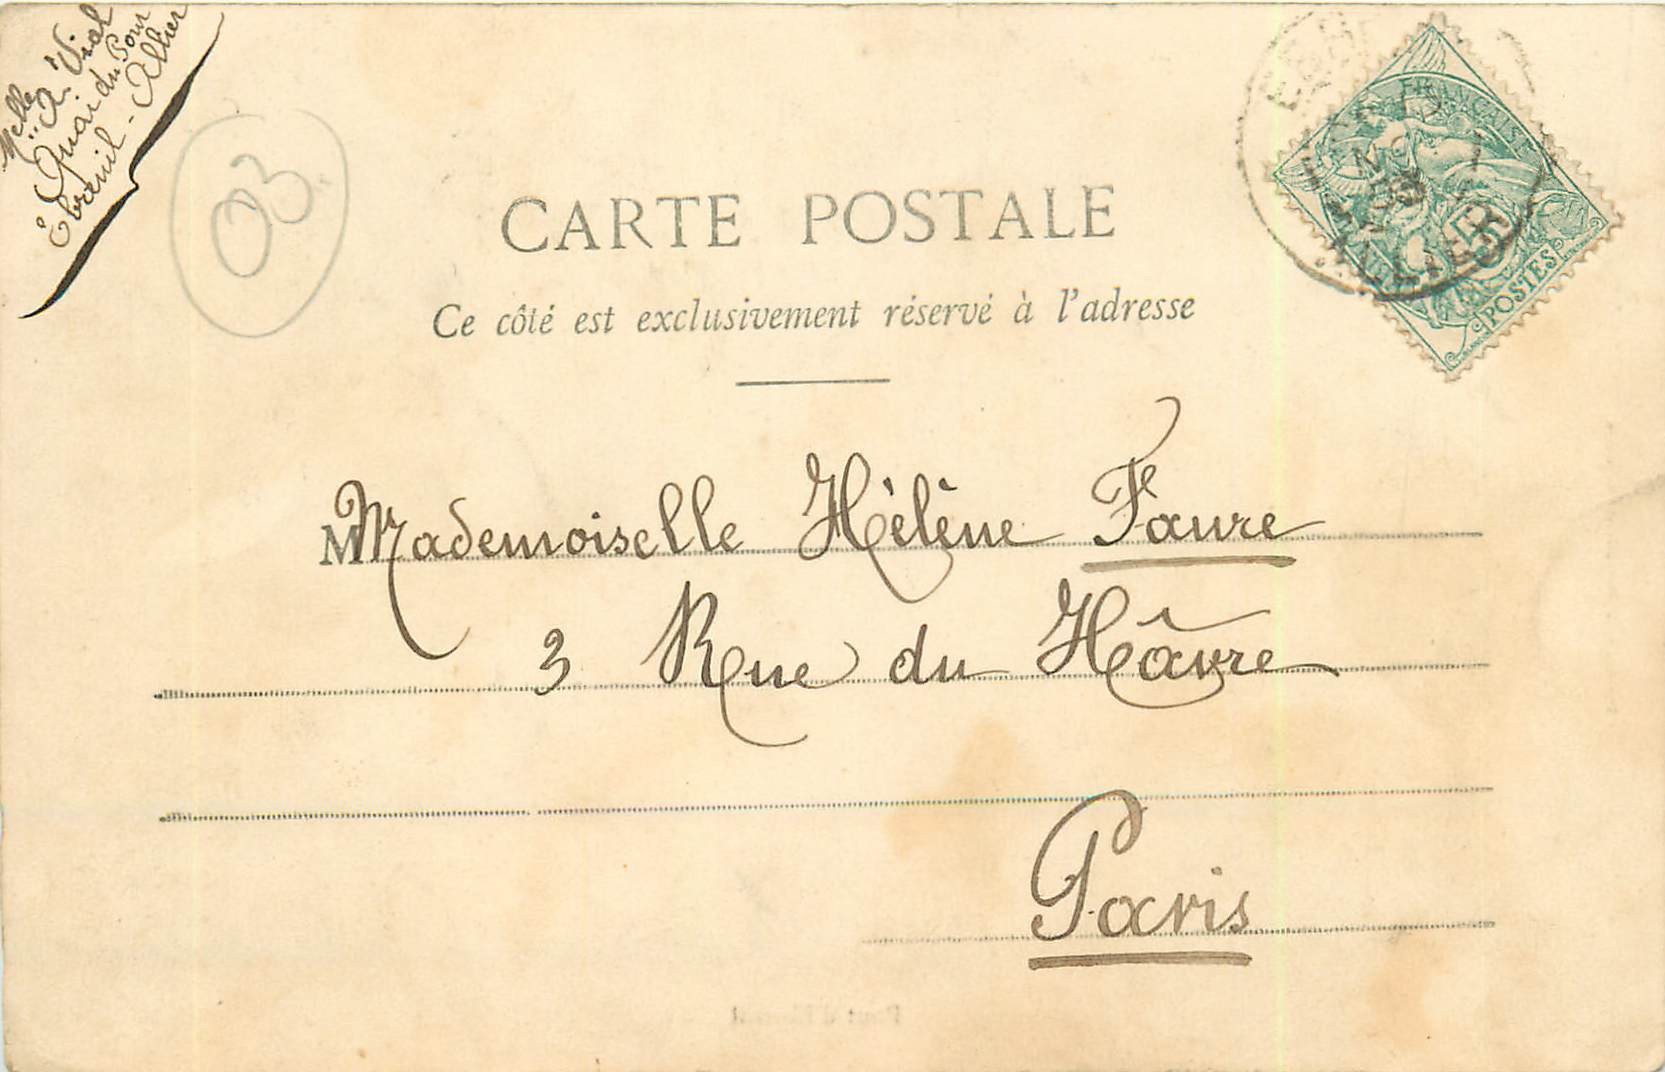 Melle
A. Vial
Quai du Pont
Ebreuil - Allier
03
CARTE POSTALE
Ce côté est exclusivement réservé à l'adresse
FRANÇAISE
5
POSTES
M Mademoiselle Hélène Faure
3 Rue du Hâvre
Paris